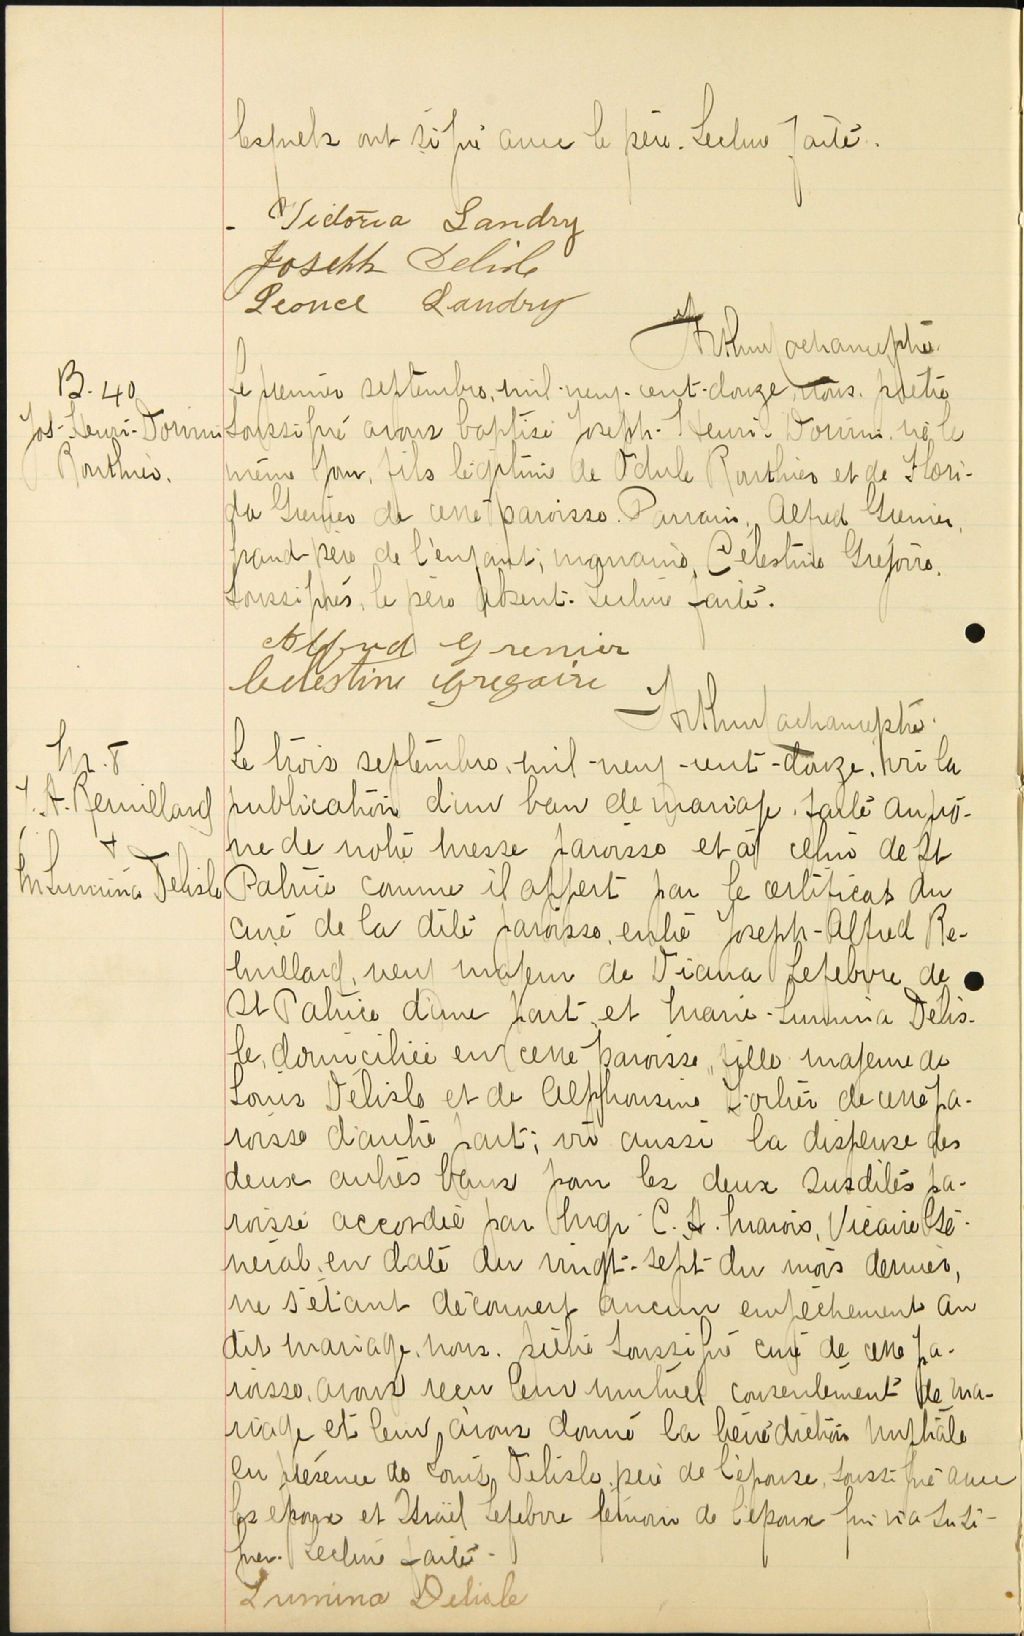 lesquels ont signé avec le père. Lecture faite.
Victoria Landry
Joseph Delisle
Leonce Landry
Arthur Lachance ptre
B. 40
Jos-Henri-Dorvini
Routhier.
Le premier septembre, mil-neuf-cent-douze, nous, prêtre
soussigné avons baptisé Joseph-Henri-Dorvini, né le
même jour, fils légitime de Odule Routhier et de Flori-
da Grenier de cette paroisse. Parrain, Alfred Grenier,
grand-père de l'enfant; marraine, Célestine Grégoire,
soussignés, le père absent. Lecture faite.
Alfred Grenier
Celestine Gregoire
Arthur Lachance ptre
M. 8
J. A. Remillard
+
M Lumina Delisle
Le trois septembre, mil-neuf-cent-douze, vu la
publication d'un ban de mariage faite au prô-
ne de notre messe paroisse et à celui de St
Patrice comme il appert par le certificat du
curé de la dite paroisse, entre Joseph-Alfred Re-
millard, veuf majeur de Diana Lefebvre de
St Patrice d'une part, et Marie-Lumina Delis-
le, domiciliée en cette paroisse, fille majeure de
Louis Délisle et de Alphonsine Fortier de cette pa-
roisse d'autre part; vu aussi la dispense des
deux autres bans pour les deux susdites pa-
roisse accordée par Mgr C. A. Marois, Vicaire Gé-
néral, en date du vingt-sept du mois dernier,
ne s'étant découvert aucun empêchement au
dit mariage, nous, prêtre soussigné curé de cette pa-
roisse, avons reçu leur mutuel consentement de ma-
riage et leur avons donné la bénédiction nuptiale
en présence de Louis Delisle, père de l'épouse, soussigné avec
les époux et Israël Lefebvre témoin de l'époux qui n'a su si-
gner. Lecture faite.
Lumina Delisle